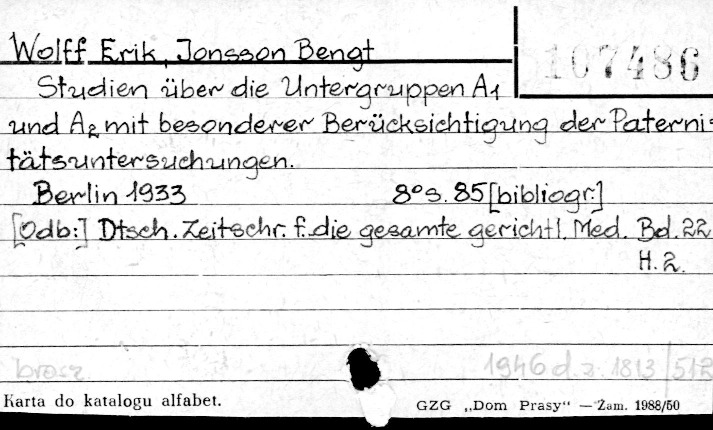 Wolff Erik, Jonsson Bengt
107486
Studien über die Untergruppen A1
und A2 mit besonderer Berücksichtigung der Paterni-
tätsuntersuchungen.
Berlin 1933 8° s. 85 [bibliogr.]
[Odb:] Dtsch. Zeitschr. f. die gesamte gerichtl. Med. Bd. 22
H. 2.
brosz. 1946 d. z. 1813/512
Karta do katalogu alfabet. GZG „Dom Prasy“ — Zam. 1988/50